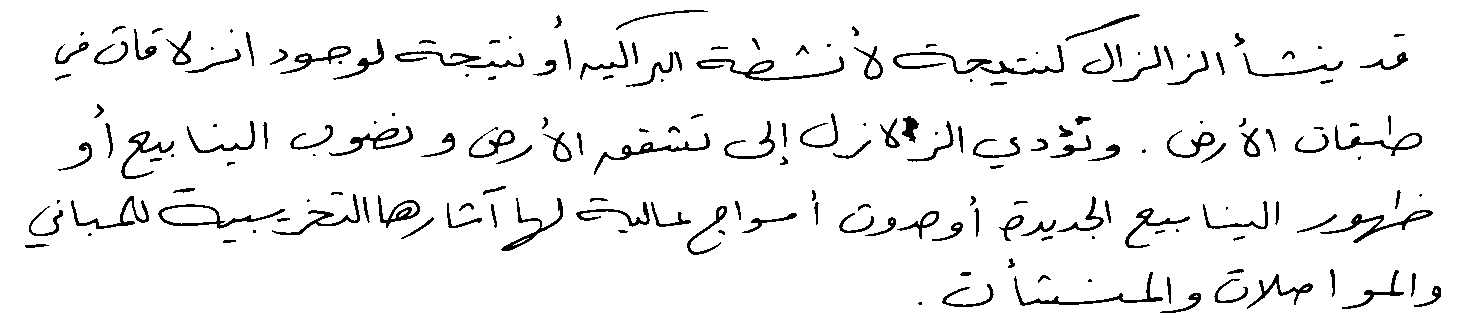 قد ينشأ الزالزال كنتيجة لأنشطة البراكين أو نتيجة لوجود انزلاقات في
طبقات الأرض. وتؤدي الزلازل إلى تشقق الأرض ونضوب الينابيع أو
ظهور الينابيع الجديدة أو حدوث أمواج عالية لها آثارها التخريبية للمباني
والمواصلات والمنشأت.